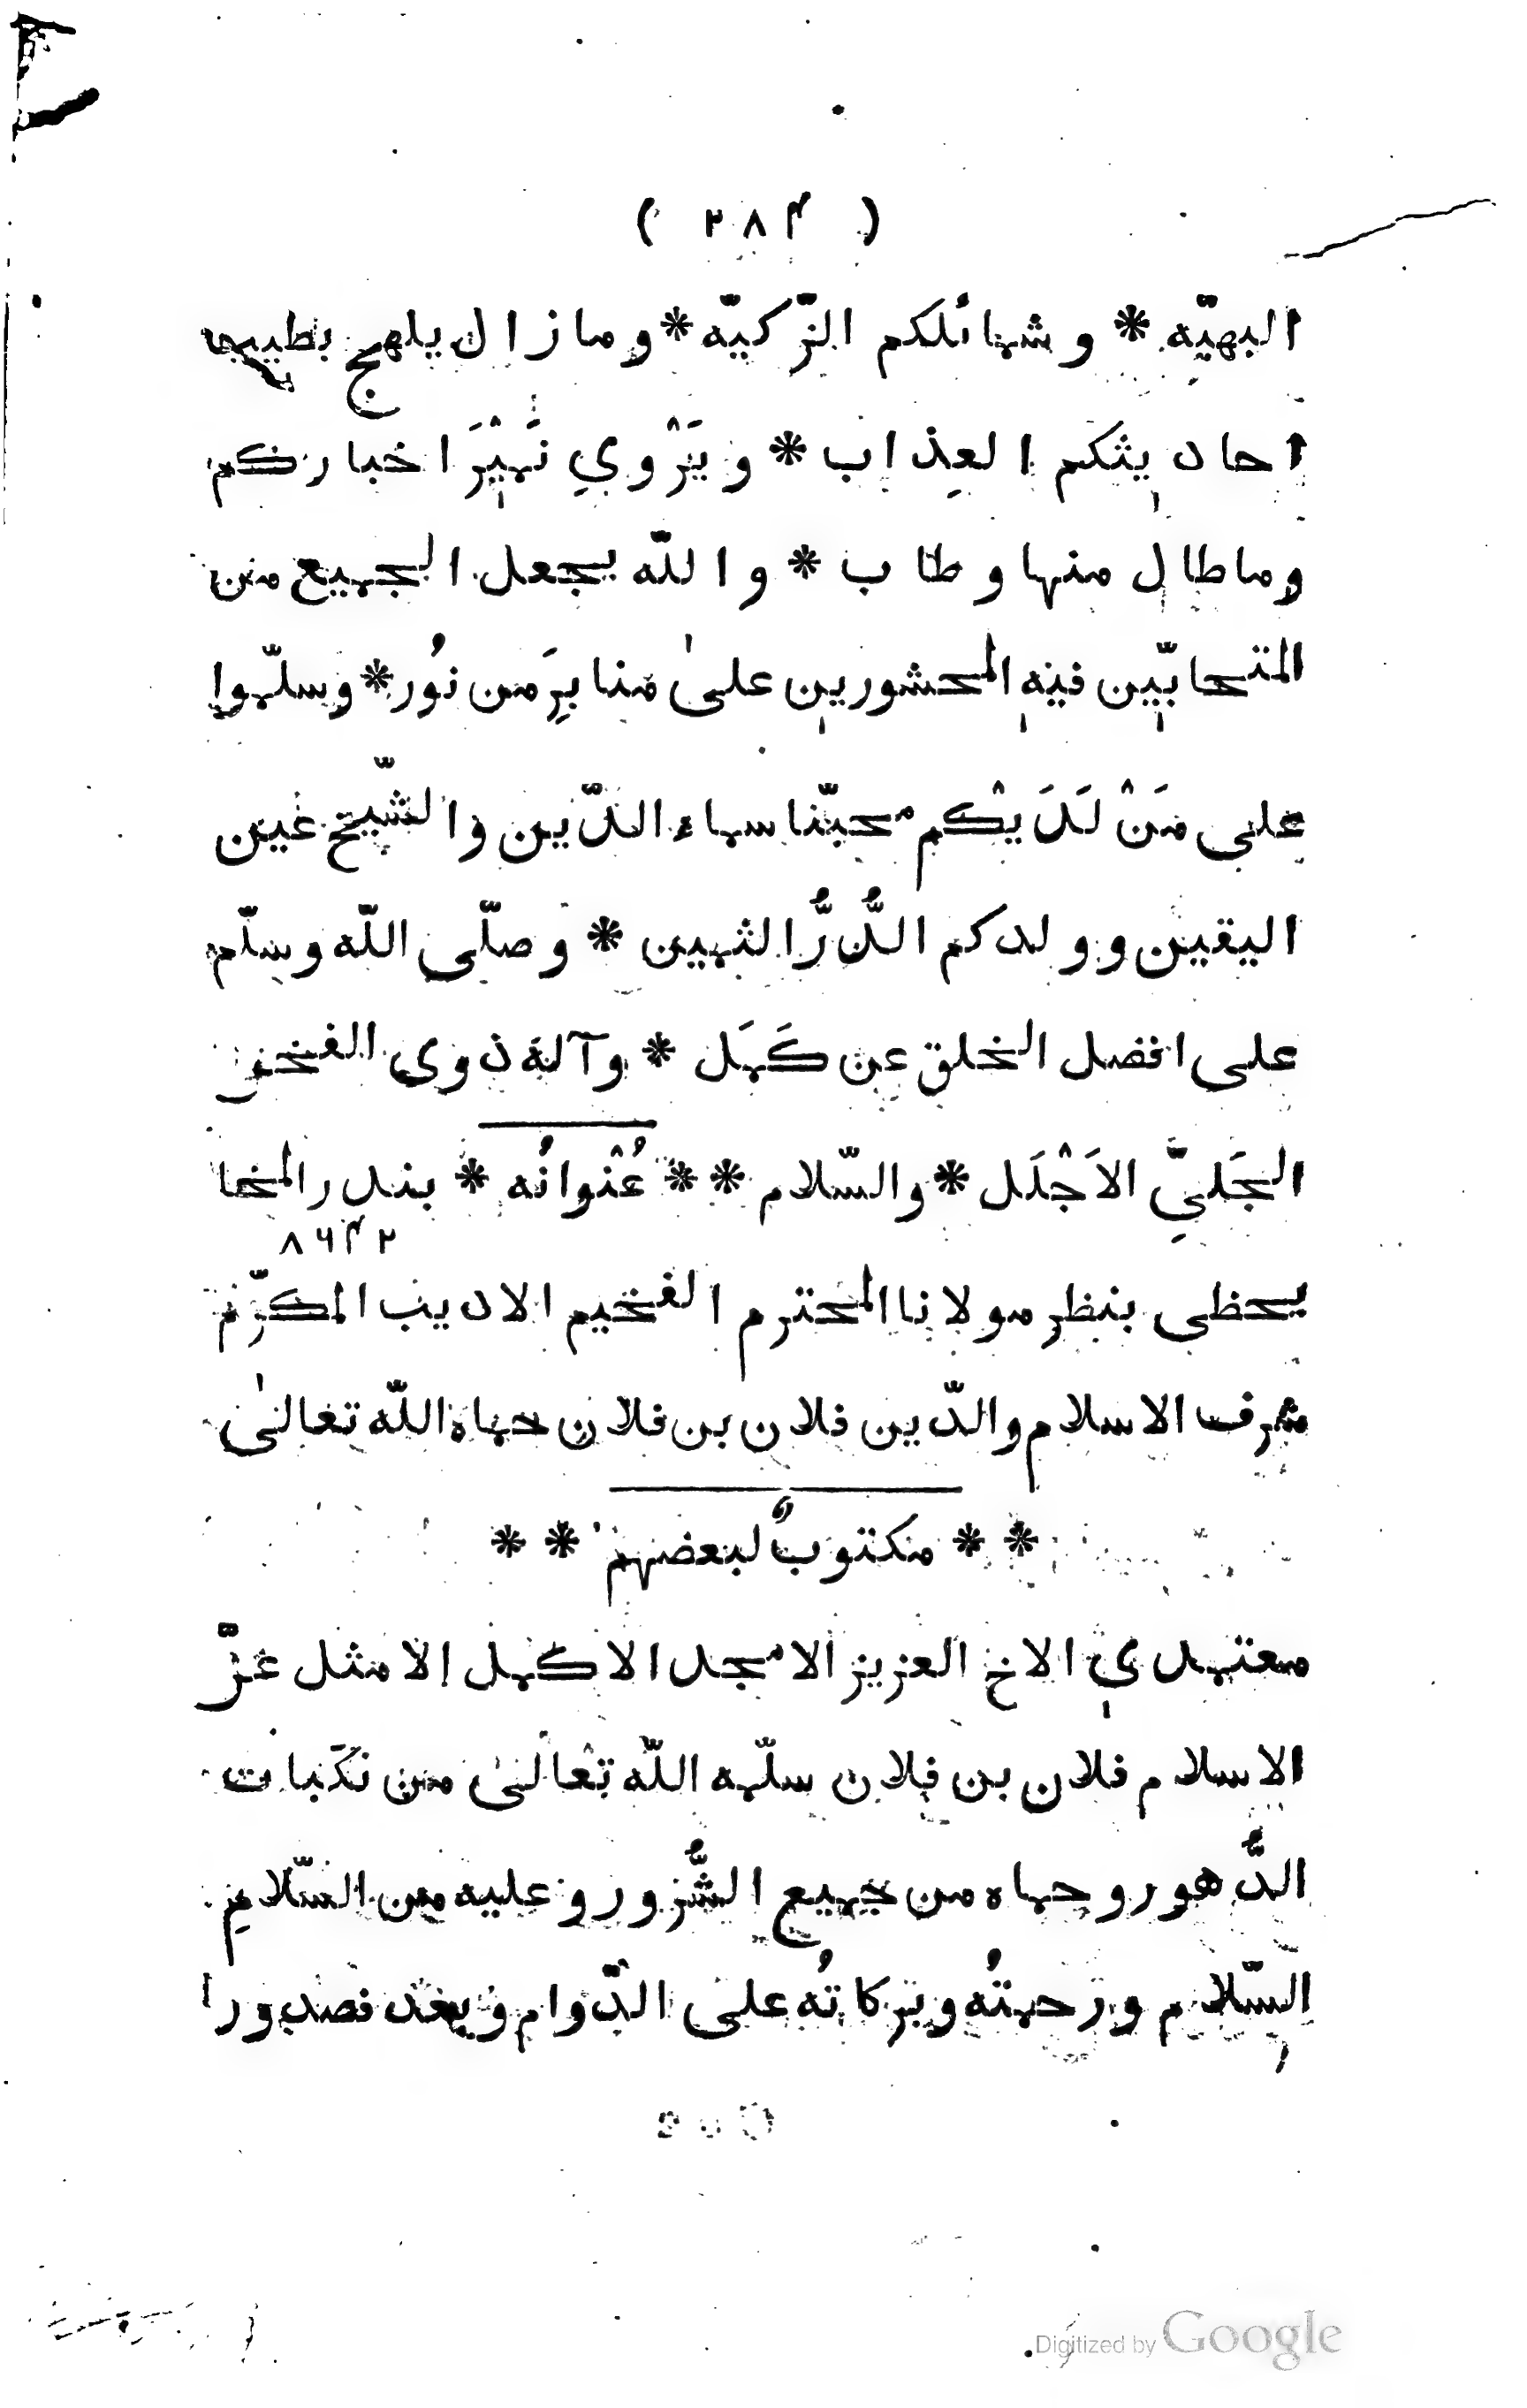 ( ٢٨٤ )
البهيّه * وشمائلكم الزّكيّه * وما زال يلهج بطيب
احاديثكم العِذاب * ويَرْوي نَمِيْرَ اخباركم
وما طال منها وطاب * والله يجعل الجميع من
المتحابّين فيه المحشورين على منابِرَ من نُور * وسلّموا
على مَنْ لَدَيْكم محبّنا سماء الدّين والشّيخ عين
اليقين وولدكم الدُّرُّ الثمين * وصلّى الله وسلّم
على افضل الخلق عن كَمَل * وآله ذوى الفخر
الجَليِّ الاَجْلَل * والسّلام * * عُنْوانُه * بندر المخا
٨٦٤٢
يحظى بنظر مولانا المحترم الفخيم الاديب المكرّم
شرف الاسلام والدّين فلان بن فلان حماه الله تعالىٰ
* * مكتوبٌ لبعضهم * *
معتمدي الاخ العزيز الامجد الاكمل الامثل عزّ
الاسلام فلان بن فلان سلّمه الله تعالىٰ من نكَبات
الدُّهور وحماه من جميع الشُّرور وعليه من السّلامِ
السّلام ورحمتُه وبركاتُه على الدّوام وبعد فصدورا
Digitized by Google